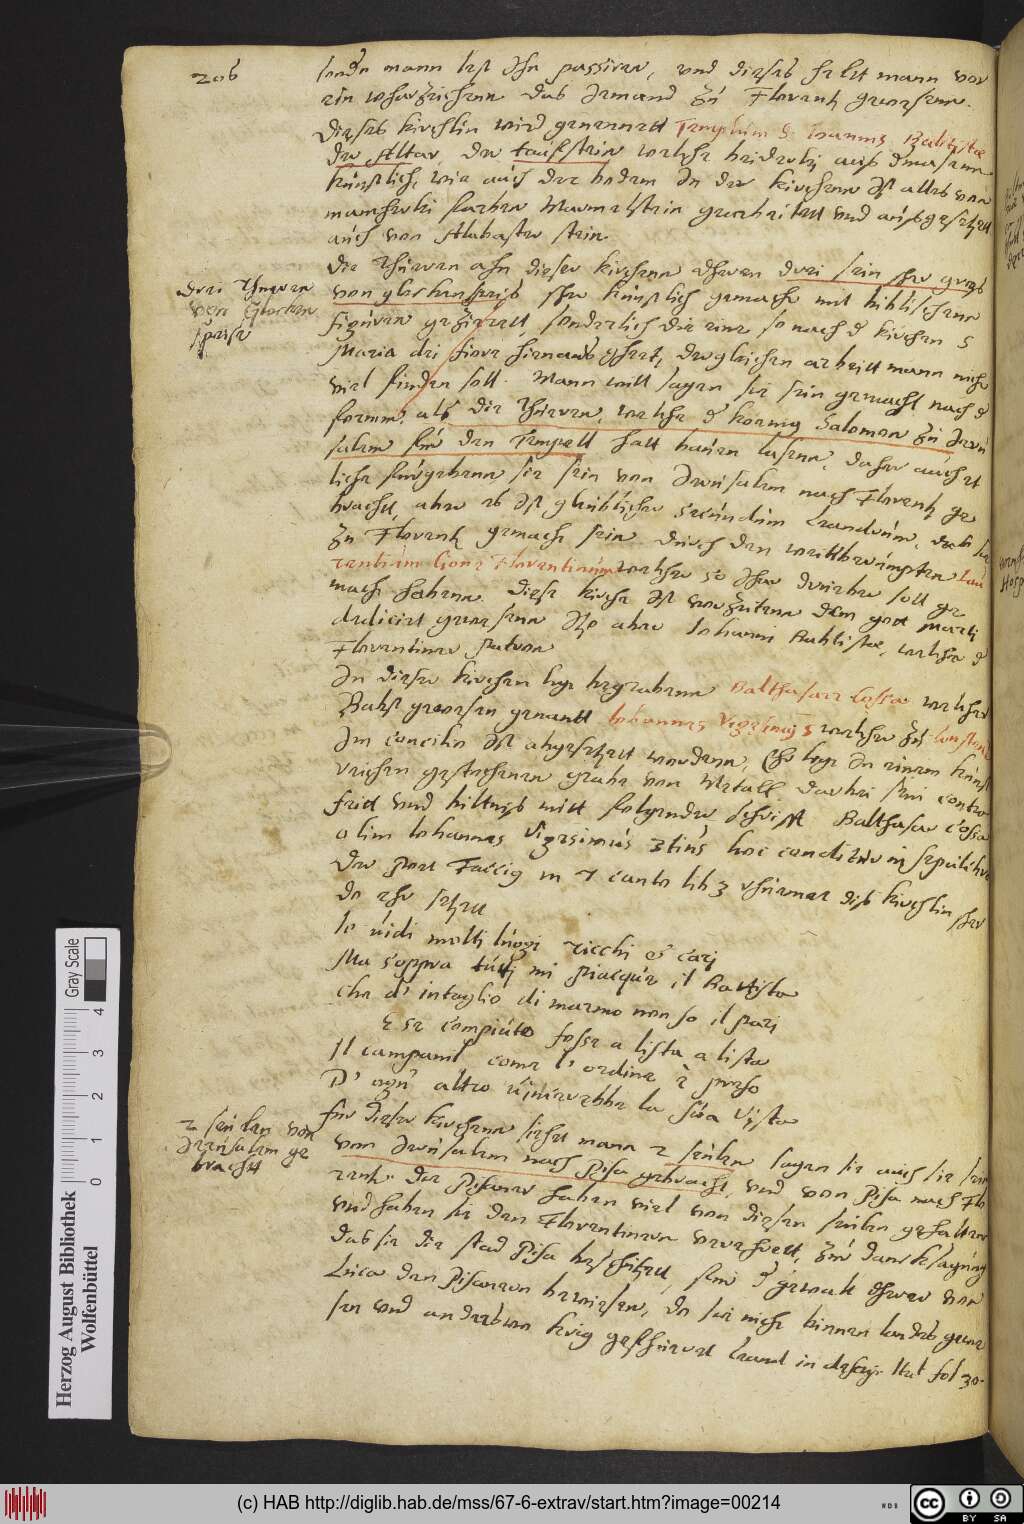 206
sonder mann lest ihn passiren, und dieses helt mann vor
ein wharzeichenn das iemand zu Florentz gewesenn.
Dieses kirchlin wird genennett Templum S. Ioannis Babtistae
der Altar, der tauffstein welche beiderlei aus dermasenn
künstlich, wie auch der bodem in der kirchenn ist alles von
mancherlei farben Marmelstein gearbeitett und ausgesetzett
auch von Alabaster stein.
Die Thüeren ahn dieser kirchenn ihrer drei sein sher gros
von glockenspeis sher künstlich gemacht mit biblischenn
figuren gezierett, sonderlich die eine so nach der kirchen S
Maria dei fiore hienaus ghett, dergleichen arbeitt mann nicht
viel finden soll. Mann will sagen sie sein gemacht nach der
formm, als die Thüeren, welche der koenig Salomon zu Ieru
salem für den Tempell hatt bauen lasenn, daher auch et
liche fürgebenn sie sein von Ierusalem nach Florentz ge
bracht, aber es ist glaublicher secundum Leandrum, das sie
zu Florentz gemacht sein durch den weittberümpten Lau
rentium Cione Florentinum welcher 50 Ihar drueber soll ge
macht habenn. Diese kirche ist vorzeitenn dem gott Marti
dedicirt gewesenn itzt aber Iohanni Babtistae, welcher der
Florentiner Patron
In dieser kirchen ligt begrabenn Balthasare Cossa welcher
Babst gewesen genandt Iohannes Vigesimus 3 welcher zu Constentz
Im concilio ist abgesetzett wordenn, Ehr ligt in einem künst
reichen gestochenen grabe von Metall darbei sein contro
feict und biltnis mitt folgender schrifft Balthasar Cossa
olim Iohannes Vigesimus 3tius hoc conditur in sepulchro
Der Poet Faccig in 7 canto lib 3 rhüemet dis kirchlin sher
do ehr setzett
Io vidi molti luogi ricchi e cari
Ma sopra tutti mi piacque il Battista
che d' intaglio di marmo non so il pari
E se compiuto fosse a lista a lista
Il campanil come l' ordine è preso
D' ogn' altro vincerebbe la sua vista
für dieser kirchenn siehet mann 2 seulen sagen sie auch sie sein
von Ierusalem nach Pisa gebracht, und von Pisa nach Flo
rentz. Die Pisaner haben viel von diesen seulen gehalten
und haben sie den Florentinern verehrett, zur dancksagung
das sie die stad Pisa beschützett, für der gewalt therer von
Luca den Pisanern bewiesen, do sie nicht binnen landes gewe
sen und anderswo krig gefhüerett Leand in descrip. Ital fol 30.
Drei Thueren
von Glocken
speise
2 seulen von
Ierusalem ge
bracht
Herzog August Bibliothek
Wolfenbüttel
Gray Scale
0 1 2 3 4
(c) HAB http://diglib.hab.de/mss/67-6-extrav/start.htm?image=00214
WDB
cc BY SA